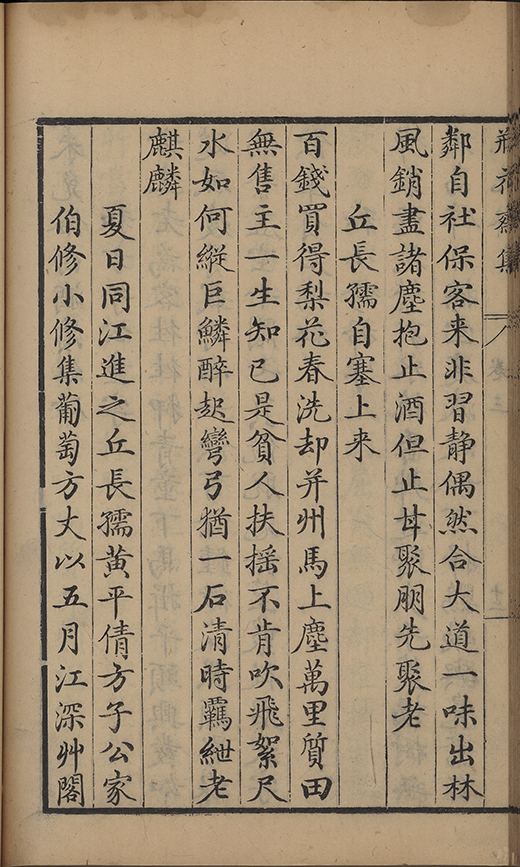 瓶花齋集 卷三 十三
鄰自社保客来非習静偶然合大道一味出林
風銷盡諸塵抱止酒但止甘聚朋先聚老
丘長孺自塞上来
百錢買得梨花春洗却并州馬上塵萬里質田
無售主一生知已是貧人扶摇不肯吹飛絮尺
水如何縱巨鱗醉起彎弓猶一石清時羈紲老
麒麟
夏日同江進之丘長孺黃平倩方子公家
伯修小修集葡萄方丈以五月江深艸閣